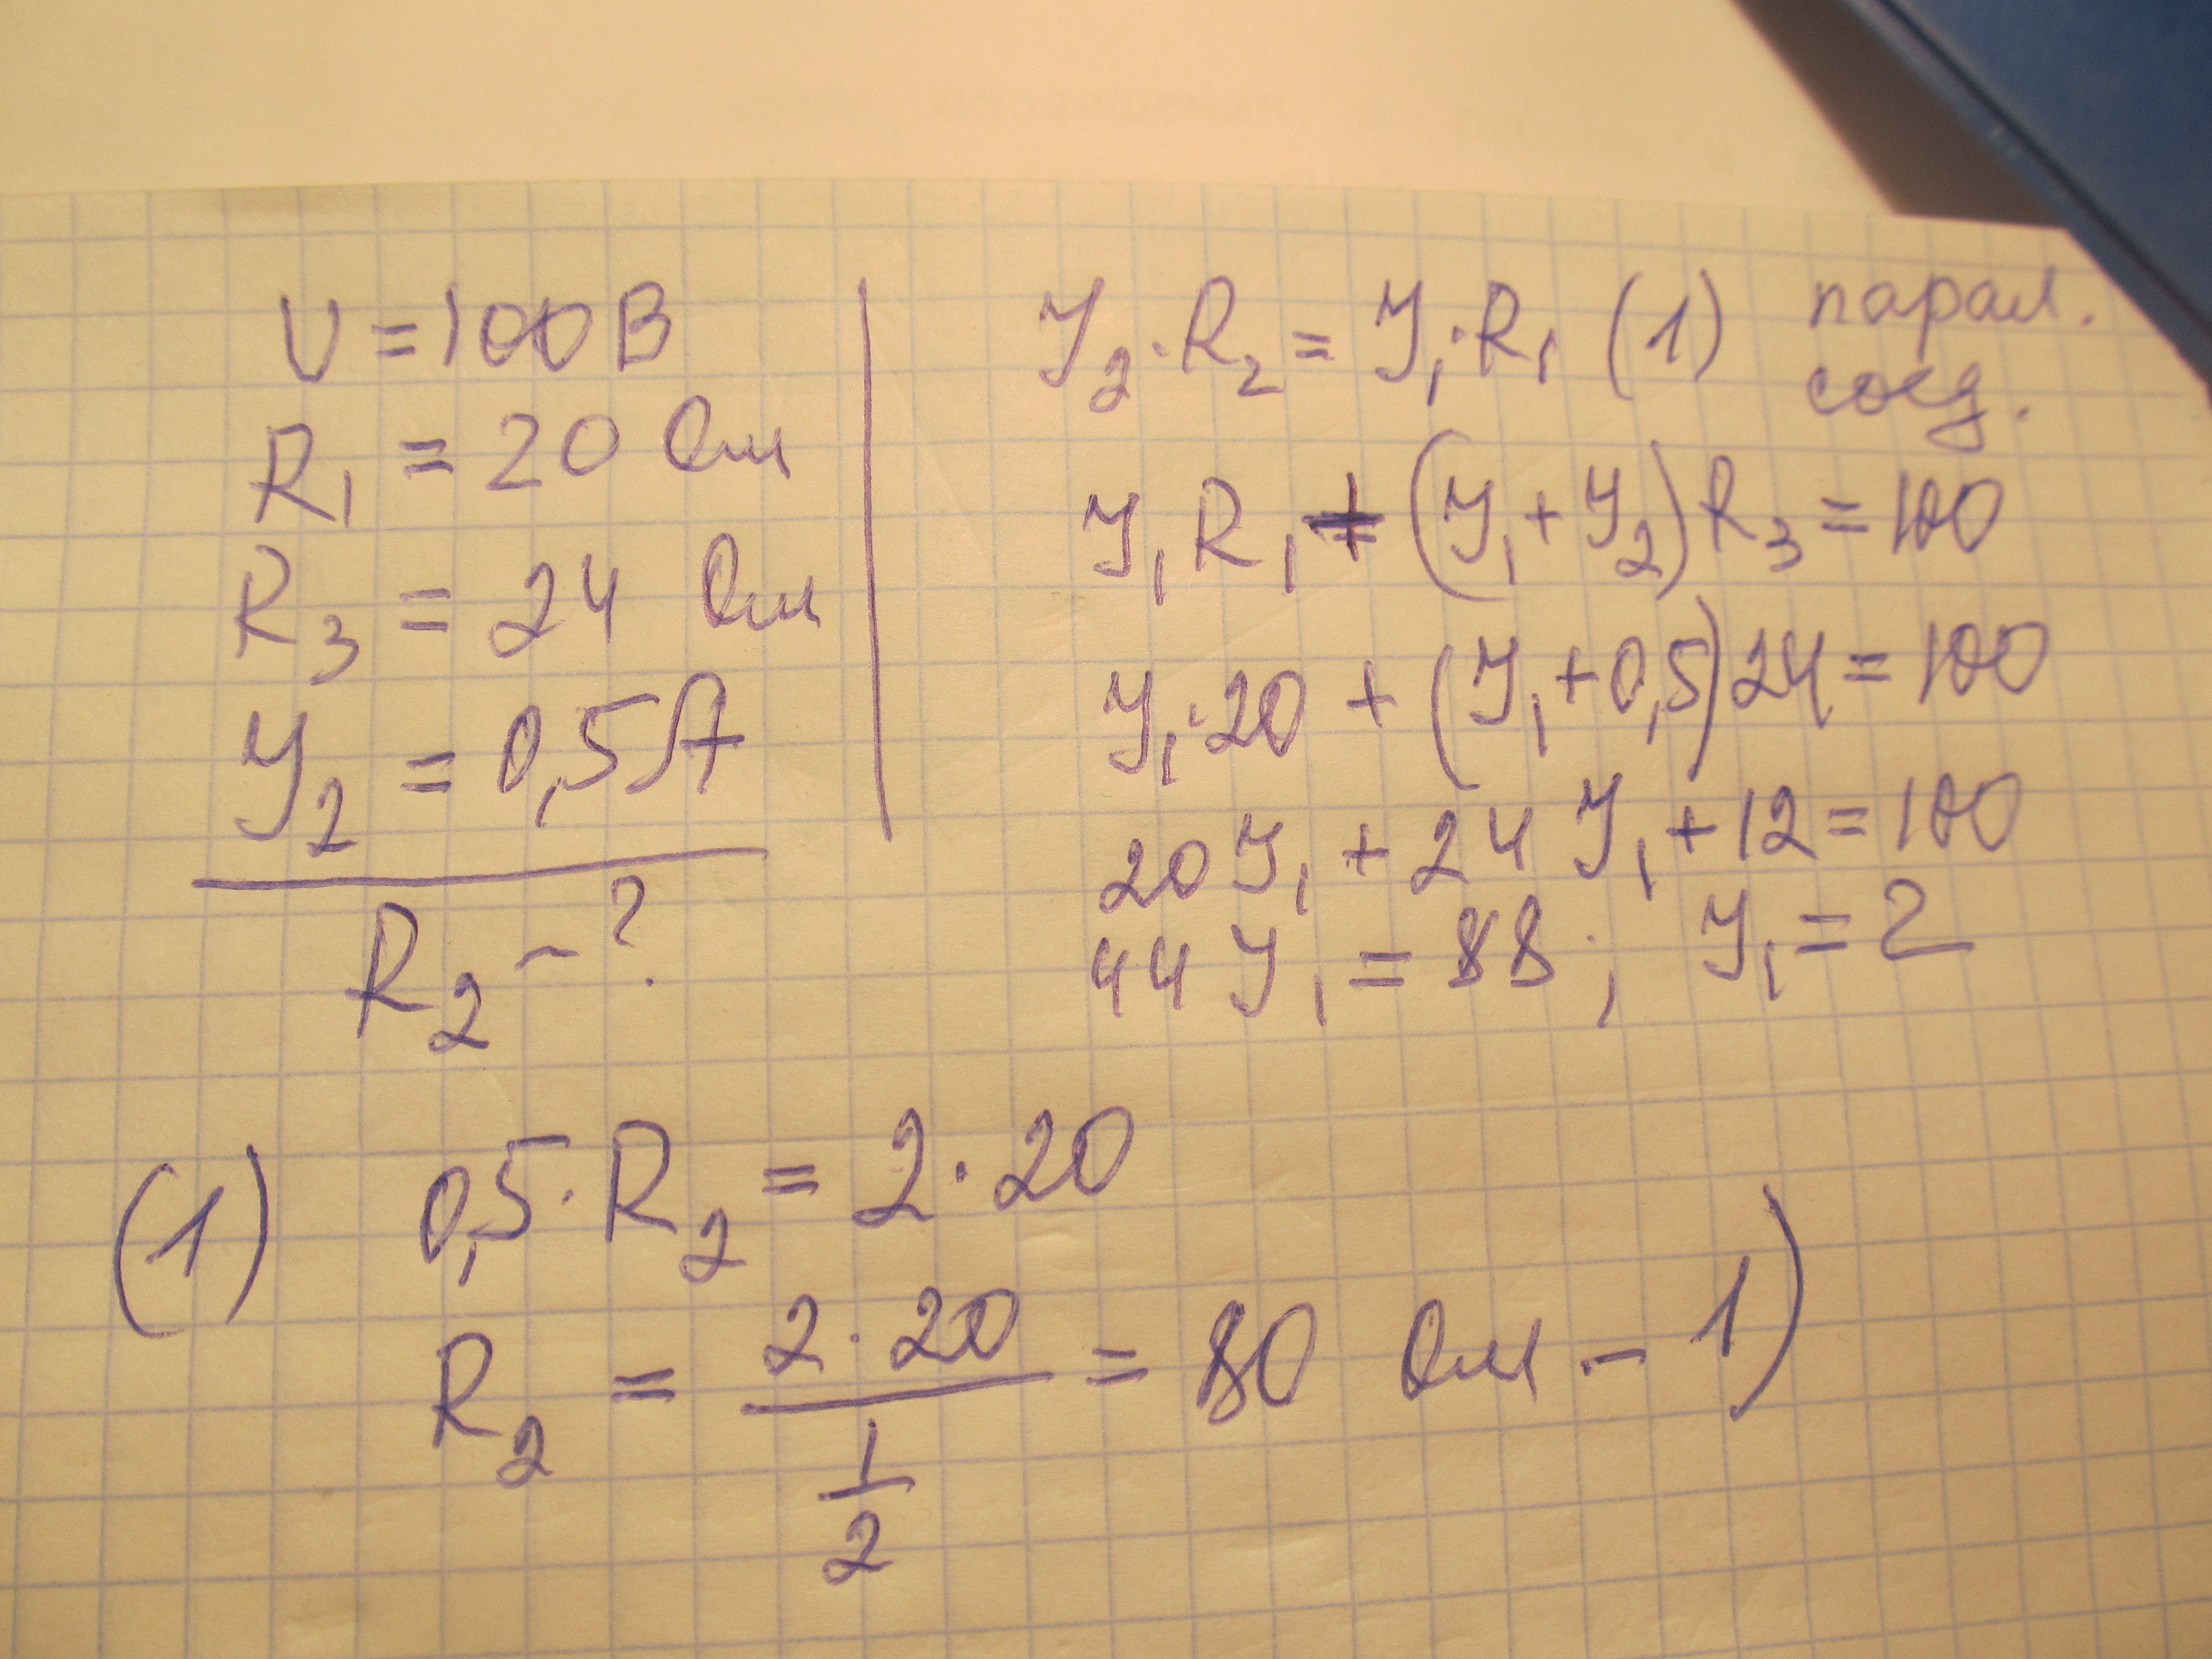 U = 100 В
R₁ = 20 Ом
R₃ = 24 Ом
У₂ = 0,5 А
R₂ - ?
У₂·R₂ = У₁·R₁ (1) парал.
соед.
У₁R₁ + (У₁ + У₂)R₃ = 100
У₁·20 + (У₁ + 0,5)24 = 100
20У₁ + 24У₁ + 12 = 100
44У₁ = 88 ; У₁ = 2
(1) 0,5·R₂ = 2·20
R₂ = 2·20 / 1/2 = 80 Ом - 1)